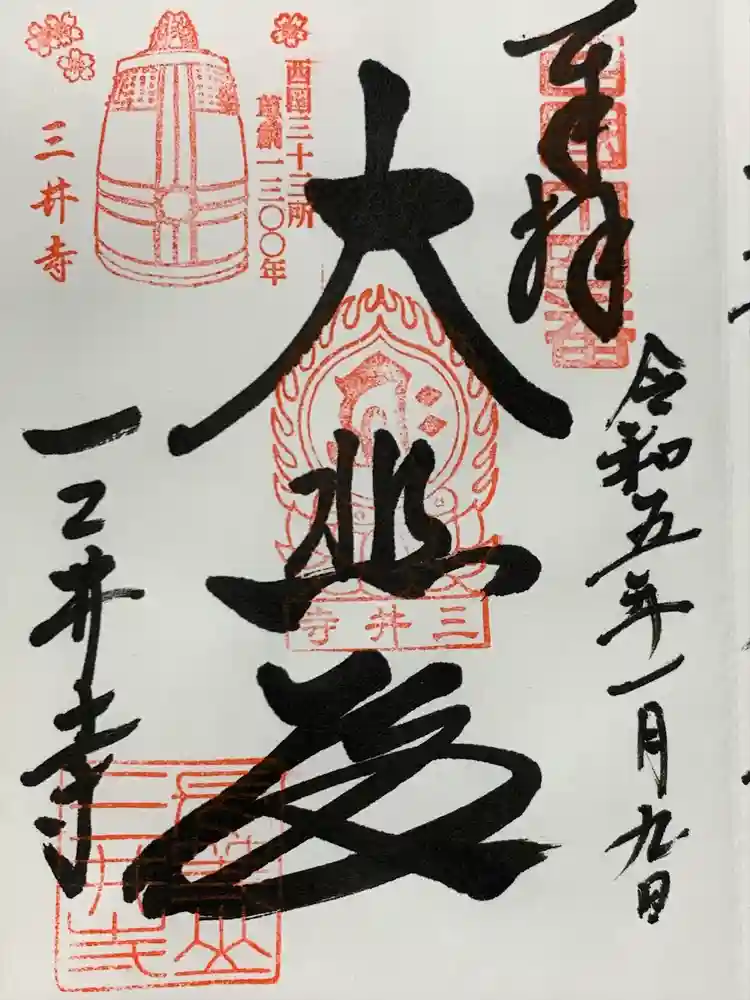 奉拝
令和五年一月九日
大悲殿
三井寺
西国三十三所
草創一三〇〇年
三井寺
三井寺
長等山
三井寺